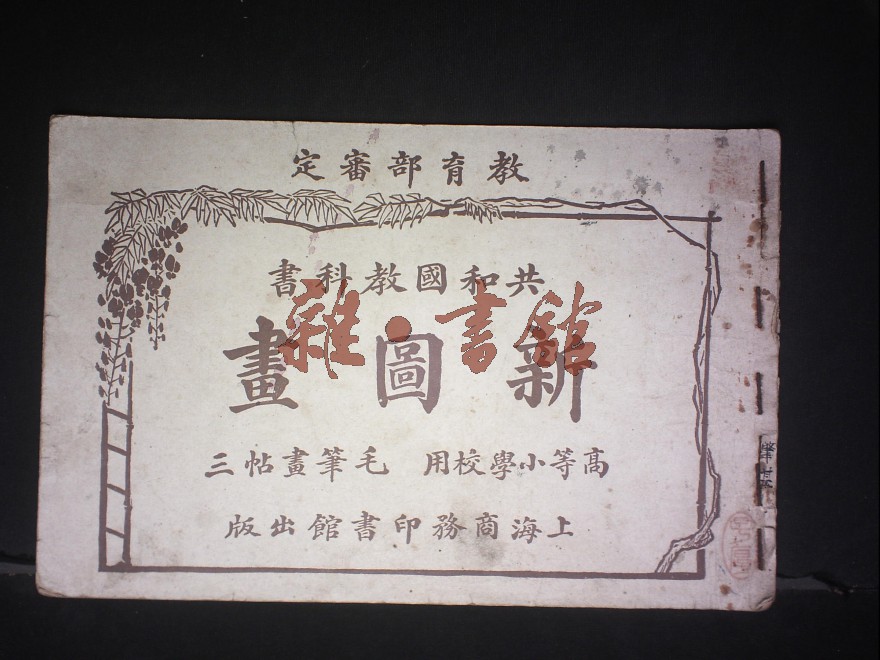 教育部審定
共和國教科書
新圖畫
雜·書館
高等小學校用 毛筆畫帖三
上海商務印書館出版